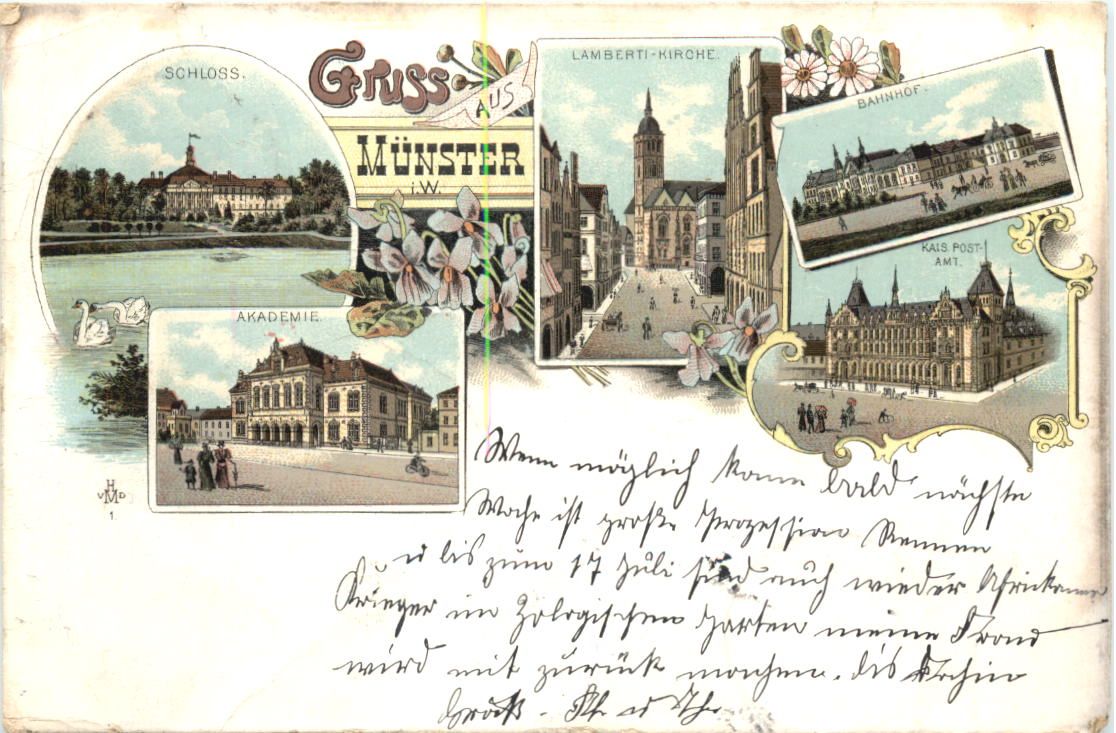 SCHLOSS.
GRUSS
AUS
MÜNSTER
i. W.
LAMBERTI-KIRCHE.
BAHNHOF.
KAIS. POST-
AMT.
AKADEMIE.
H
VMD
1.
Wenn möglich komme bald nächste
Woche ist große Prozession Rennen
u bis zum 17 Juli sind auch wieder
Krieger im Zologischen Garten meine
wird mit zurück machen. dis
Gruß